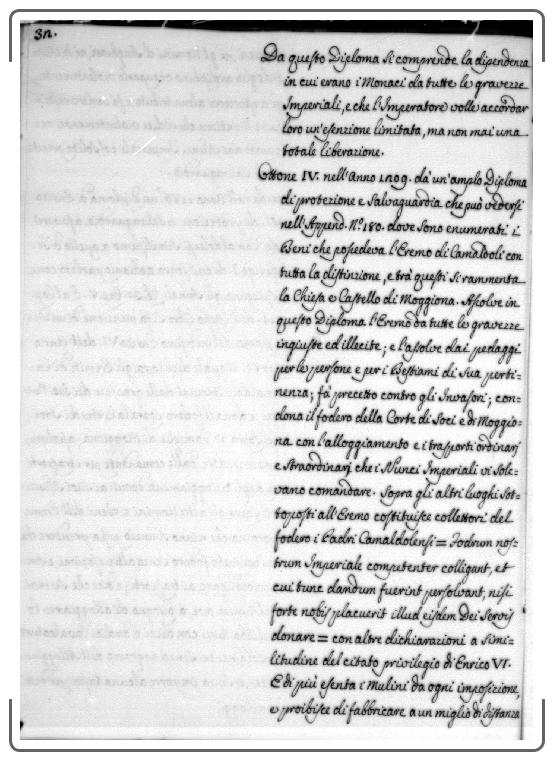 3n.
Da questo Diploma si comprende la dipendenza
in cui erano i Monaci da tutte le gravezze
Imperiali, e che l'Imperatore volle accordar
loro un'esenzione limitata, ma non mai una
totale liberazione.
Ottone IV. nell'Anno 1209. dà un'amplo Diploma
di protezione e Salvaguardia che può vedersi
nell'Append. N.º 180. dove sono enumerati i
Beni che possedeva l'Eremo di Camaldoli con
tutta la distinzione, e trà questi si rammenta
la Chiesa e Castello di Moggiona. Assolve in
questo Diploma l'Eremo da tutte le gravezze
ingiuste ed illecite; e l'assolve dai pedaggi
per le persone e per i Bestiami di sua perti-
nenza; fà precetto contro gli Invasori; con-
dona il fodero della Corte di Soci e di Moggio-
na con l'alloggiamento e i trasporti ordinarj
e Straordinarj che i Nunci Imperiali vi sole-
vano comandare. Sopra gli altri luoghi Sot-
toposti all'Eremo costituisce collettori del
fodero i Padri Camaldolensi = Fodrum nos-
trum Imperiale competenter colligant, et
cui tunc dandum fuerint persolvant, nisi
forte nobis placuerit illud eisdem Dei Servis
donare = con altre dichiarazioni a simi-
litudine del citato privilegio di Enrico VI.
E di più esenta i Mulini da ogni imposizione,
e proibisce di fabbricare a un miglio di distanza